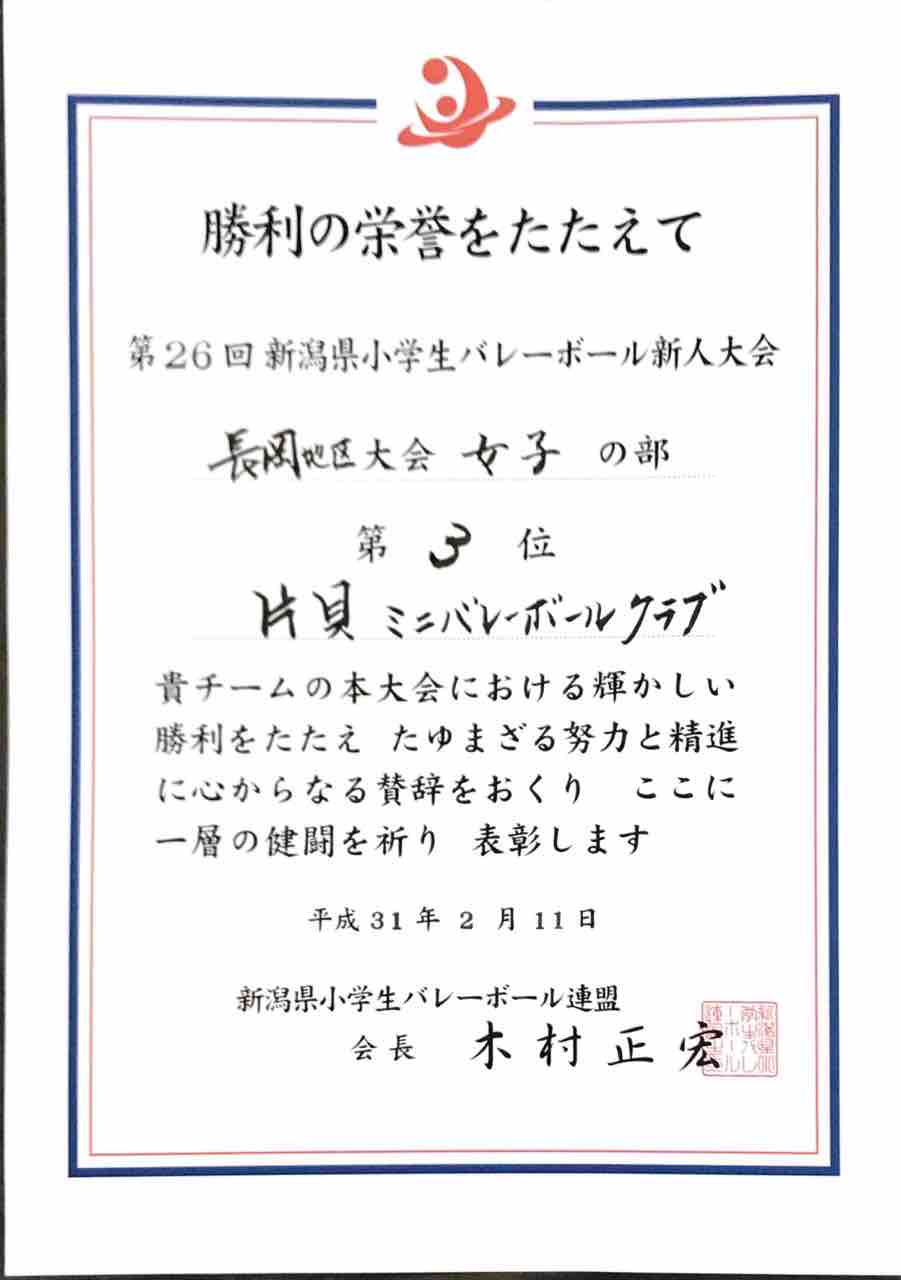 勝利の栄誉をたたえて
第26回新潟県小学生バレーボール新人大会
長岡地区大会 女子 の部
第 3 位
片貝ミニバレーボールクラブ
貴チームの本大会における輝かしい
勝利をたたえ たゆまざる努力と精進
に心からなる賛辞をおくり ここに
一層の健闘を祈り 表彰します
平成31年 2 月11日
新潟県小学生バレーボール連盟
会長 木村正宏